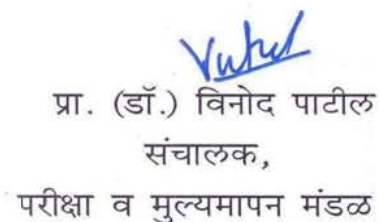 प्रा. (डॉ.) विनोद पाटील
संचालक,
परीक्षा व मुल्यमापन मंडळ